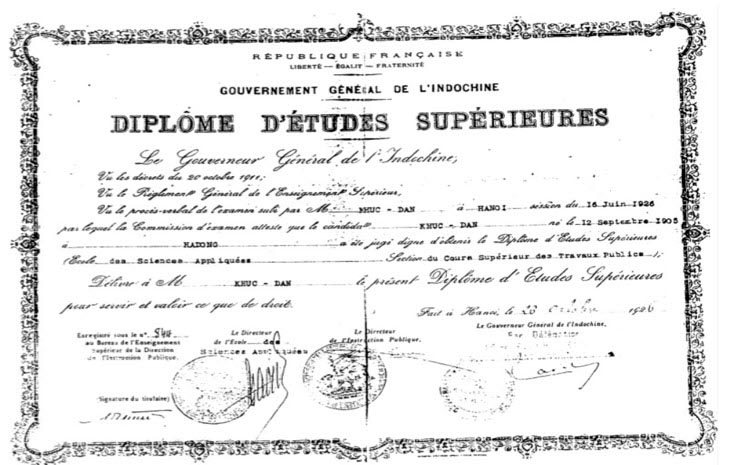 RÉPUBLIQUE FRANÇAISE
LIBERTÉ — ÉGALIT — FRATERNITÉ
GOUVERNEMENT GÉNÉRAL DE L'INDOCHINE
DIPLÔME D'ÉTUDES SUPÉRIEURES
Le Gouverneur Général de l'Indochine,
Vu les décrets du 20 octobre 1911;
Vu le Règlement Général de l'Enseignement Supérieur,
Vu le procès-verbal de l'examen subi par M. KHUC - DAN à HANOI session du 16 Juin 1926
par lequel la Commission d'examen atteste que le candidat KHUC - DAN né le 12 Septembre 1905
à HADONG a été jugé digne d'obtenir le Diplôme d'Etudes Supérieures
(Ecole des Sciences Appliquées Section du Cours Supérieur des Travaux Publics);
Délivre à M KHUC - DAN le présent Diplôme d'Etudes Supérieures
pour servir et valoir ce que de droit.
Fait à Hanoi, le 23 octobre 1926
Enregistré sous le n°
au Bureau de l'Enseignement
Supérieur de la Direction
de l'Instruction Publique.
Le Directeur
de l'École des
Sciences Appliquées
Le Directeur
de l'Instruction Publique.
Le Gouverneur Général de l'Indochine,
Par Délégation
Signature du titulaire